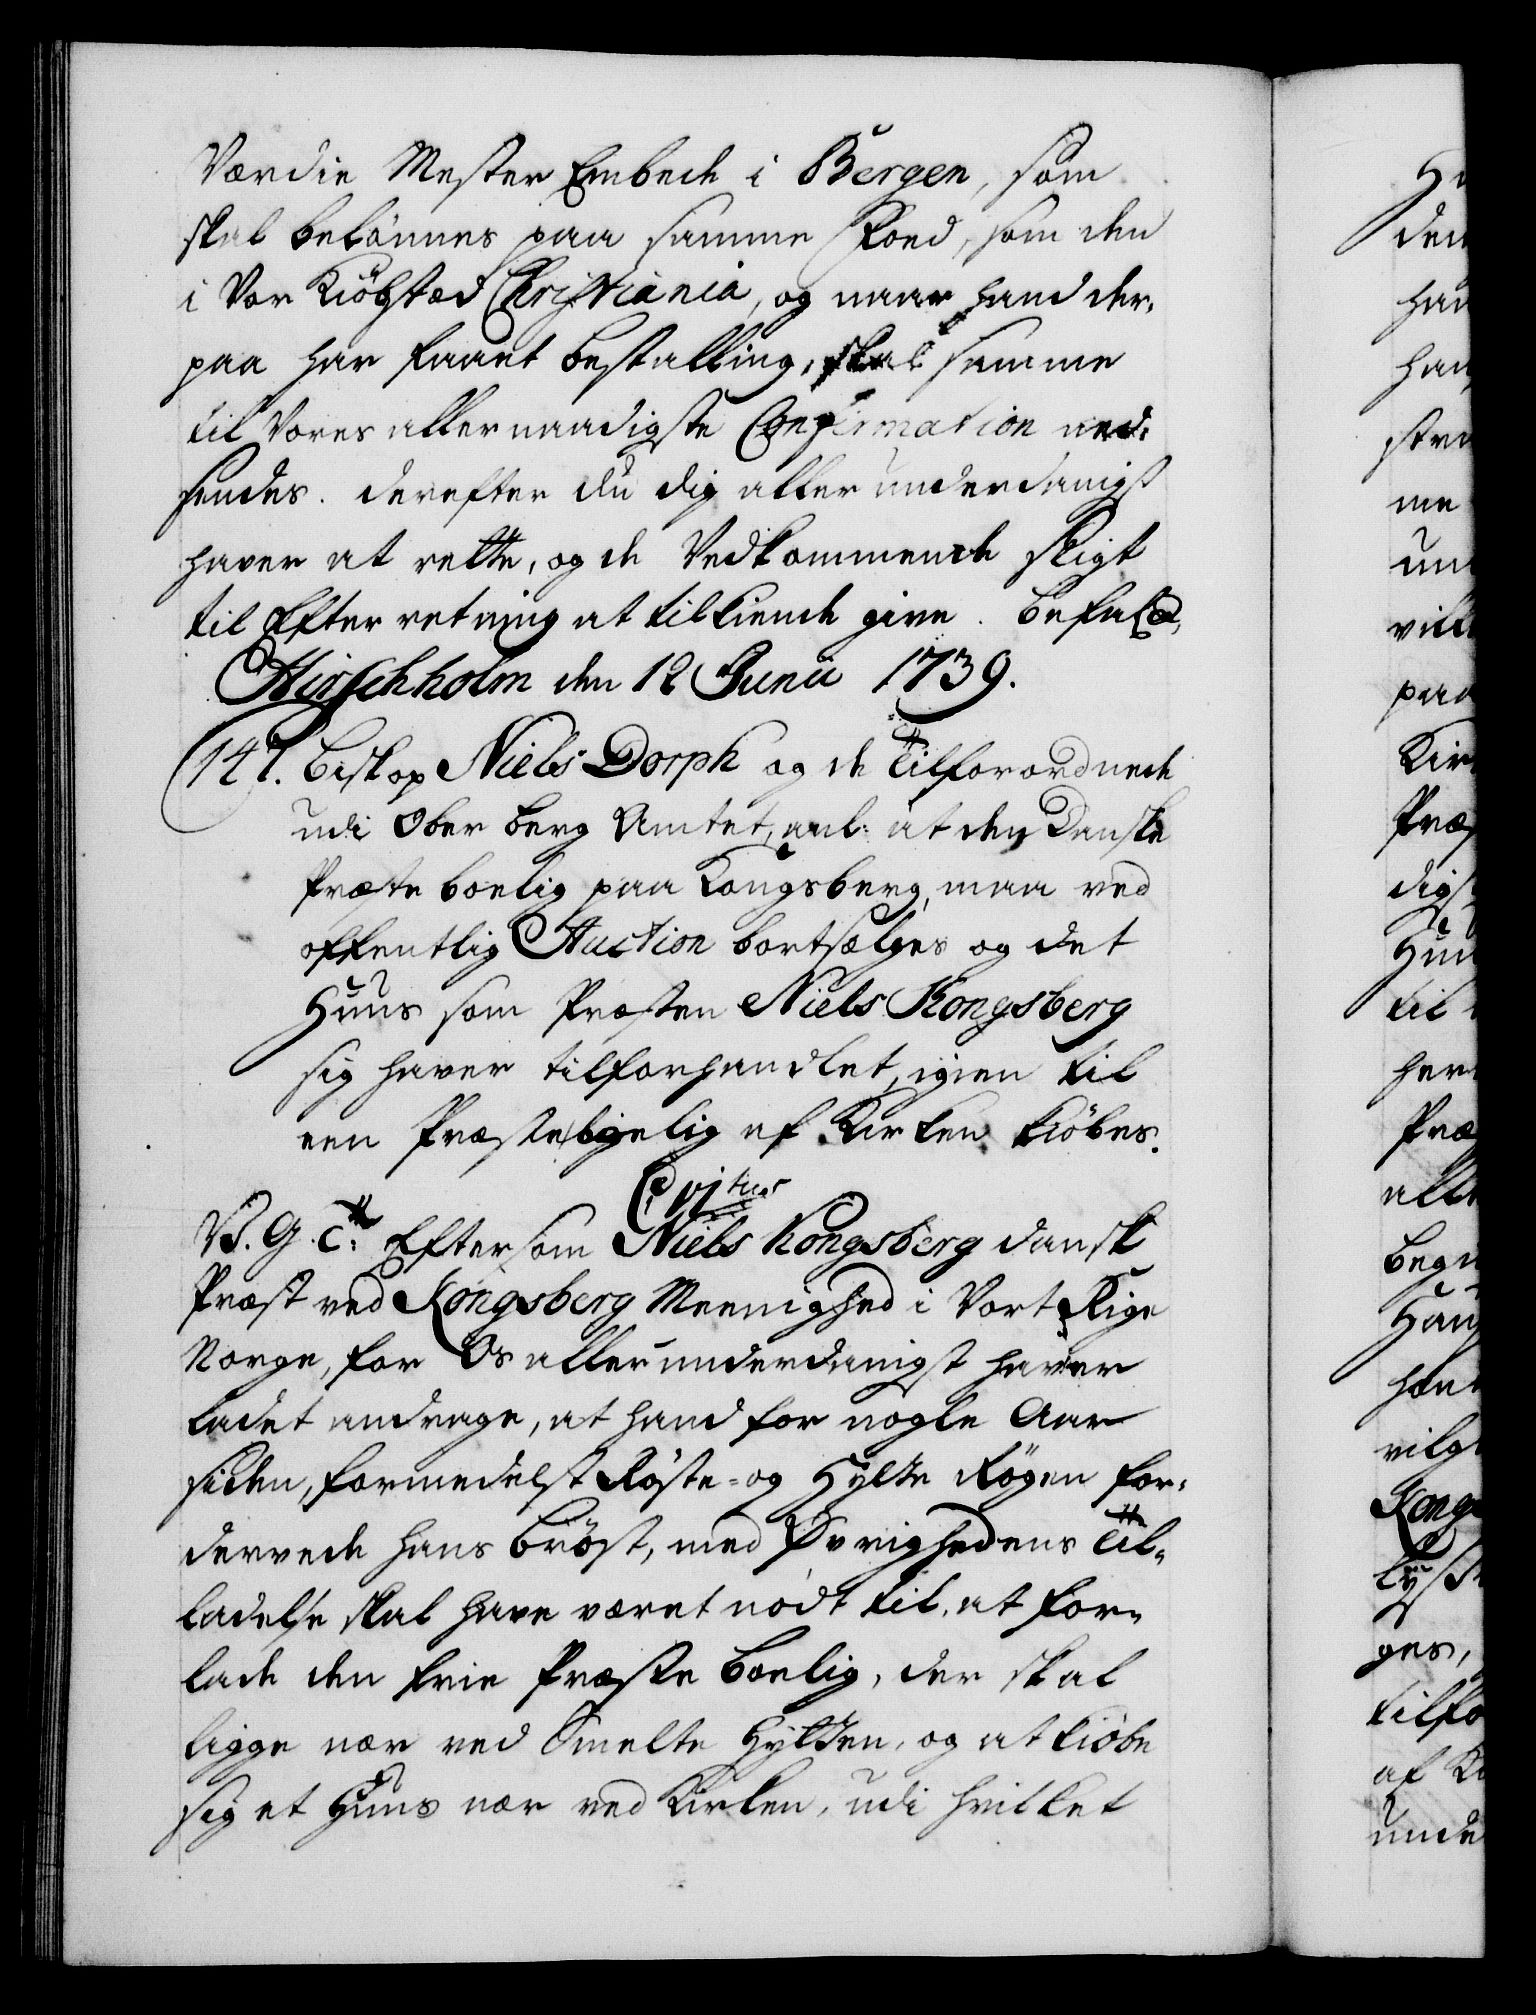 Værdie Mester Embede i Bergen, som
skal belønnes paa samme Foed, som den
i Vor Kiöbstæd Christiania, og naar hand der-
paa har faaet bestalling, skal samme
til Vores allernaadigste Confirmation ned-
sendes. derefter du dig allerunderdanigst
haver at rette, og de Vedkommende sligt
til Efterretning at tilkiende give. Befalæ,
Hirschholm den 12 Junii 1739.
147. Biskop Niels Dorph og de Tilforordnede
udi Ober Berg Amtet, anl: at den Danske
Præste boelig paa Kongsberg, maa ved
offentlig Auction bortsælges og det
Huus som Præsten Niels Kongsberg
sig haver tilforhandlet, igien til
een Præsteboelig af Kirken kiöbes.
C. VI tus
V. G. C: Eftersom Niels Kongsberg dansk
Præst ved Kongsberg Meenighed i Vort Rige
Norge, for Os allerunderdanigst haver
ladet andrage, at hand for nogle Aar
siden, formedelst Röste- og Hytte Rögen for-
dervede hans bröst, med Øvrighedens Til-
ladelse skal have været nödt til, at for-
lade den frie Præste Boelig, der skal
ligge nær ved Smelte Hytten, og at kiöbe
sig et Huus nær ved Kirken, udi hvilket